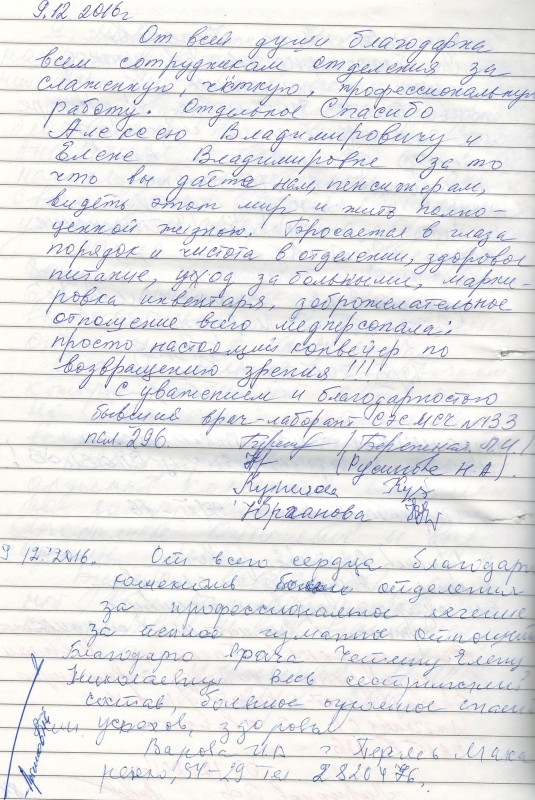 9.12.2016г
От всей души благодарна
всем сотрудникам отделения за
слаженную, чёткую, профессиональную
работу. Отдельное Спасибо
Алексею Владимировичу и
Елене Владимировне за то
что вы даёте нам, пенсионерам,
видеть этот мир и жить полно-
ценной жизнью. Бросается в глаза
порядок и чистота в отделении, здоровое
питание, уход за больными, марки-
ровка инвентаря, доброжелательное
отношение всего медперсонала:
просто настоящий конвейер по
возвращению зрения !!!
С уважением и благодарностью
бывший врач-лаборант СЭС МСЧ №133
пол. 296. (Бережная
(Русинова Н А).
Юрганова
9 12.2016. От всего сердца благодарю
отделения
за профессиональное лечение
за теплое гуманное отношение
Благодарю врача Елену
Николаевну весь сестринский
состав, большое огромное спаси
успехов, здоровья
г Пермь Мака
ренко, 54-29 тел. 2820476.